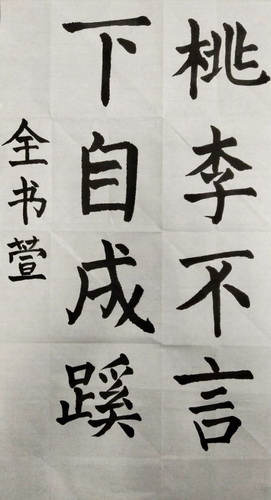 桃李不言
下自成蹊
全书萱